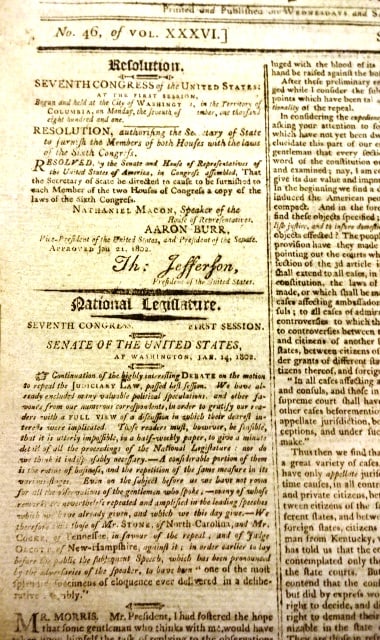 Printed and Published on WEDNESDAYS and
No. 46, of VOL. XXXVI.]
Resolution.
SEVENTH CONGRESS of the UNITED STATES:
AT THE FIRST SESSION,
Begun and held at the City of WASHINGT , in the Territory of
COLUMBIA, on Monday, the seventh of mber, one thousand
eight hundred and one.
RESOLUTION, authorising the Se etary of State
to furnish the Members of both Houses with the laws
of the Sixth Congress.
RESOLVED, by the Senate and House of Representatives of
the United States of America, in Congress assembled, That
the Secretary of State be directed to cause to be furnished to
each Member of the two Houses of Congress a copy of the
laws of the Sixth Congress.
NATHANIEL MACON, Speaker of the
House of Representatives.
AARON BURR,
Vice-President of the United States, and President of the Senate.
APPROVED Jan 21, 1802.
Th: Jefferson,
President of the United States.
National Legislature.
SEVENTH CONGRESS FIRST SESSION.
SENATE OF THE UNITED STATES,
AT WASHINGTON, JAN. 14, 1802.
Continuation of the highly interesting DEBATE on the motion
to repeal the JUDICIARY LAW, passed last session. We have al-
ready excluded many valuable political speculations, and other fa-
vours from our numerous correspondents, in order to gratify our rea-
ders with a FULL VIEW of a discussion in which their dearest in-
terests were implicated. Those readers must, however, be sensible,
that it is utterly impossible, in a half-weekly paper, to give a minute
detail of all the proceedings of the National Legislature: nor do
we think it indispensably necessary.—A considerable portion of them
is the routine of business, and the repetition of the same measure in its
various stages. Even on the subject before us we have not room
for all the observations of the gentlemen who spoke; many of whose
remarks are repeated and amplified in the leading speeches
which we have already given, and which we this day give.—We
therefore those of Mr. STONE, of North-Carolina, and Mr.
COCKE, of Tennessee, in favour of the repeal, and of Judge
OLCOTT, of New-Hampshire, against it; in order earlier to lay
before the public the subsequent Speech, which has been pronounced
by the adversaries of the speaker, to have been "one of the most
splendid specimens of eloquence ever delivered in a delibe-
rative assembly."
MR. MORRIS. Mr. President, I had fostered the hope
that some gentleman who thinks with me, would have
himself the task of replying to the observations
luged with the blood of its
hand be raised against the
After these preliminary
ged while I consider the
points which have been
tionality of the repeal.
In considering the
asking your attention to
which have not yet been
elucidate this part of our
gentlemen that every
word of the constitution
and examined; nay, I am
give its due value and
In the beginning we find a
induced the American peo
compact. And in the fore
find these objects specified;
objects effected? The people
provision have they made
pointing out the courts wh
section of the 3d article
shall extend to all cases, in
constitution, the laws of
made, or which shall be m
cases affecting ambassadors
suls; to all cases of admira
controversies to which the
to controversies between
and citizens of another
states, between citizens of
der grants of different sta
tizens thereof, and foreign
"In all cases affecting
and consuls, and those in
supreme court shall have
other cases beforementioned
appellate jurisdiction, bo
ceptions, and under such
make."
Thus then we find that
a great variety of cases
have only appellate juris
time causes, in all contro
and private citizens, bet
tween citizens of the
ferent states, and betwe
foreign states, citizens
man from Kentucky,
has told us that the co
contemplated only the
the state courts. But
contend that the const
but did by express wo
right to decide, and
right to demand their
nizable in the state